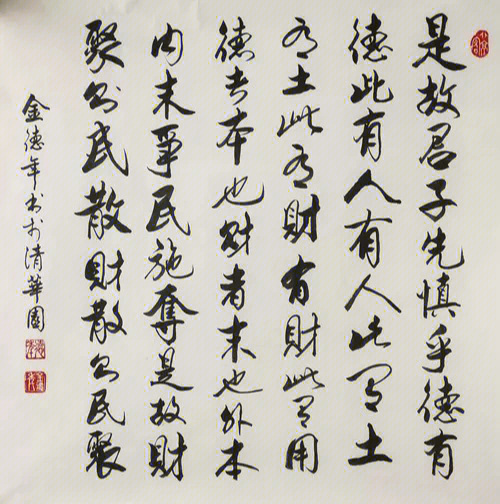 是故君子先慎乎德有
德此有人有人此有土
有土此有財有財此有用
德者本也財者末也外本
内末爭民施奪是故財
聚則民散財散則民聚
金德年書於清華園